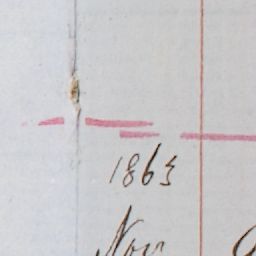 1863
Nov